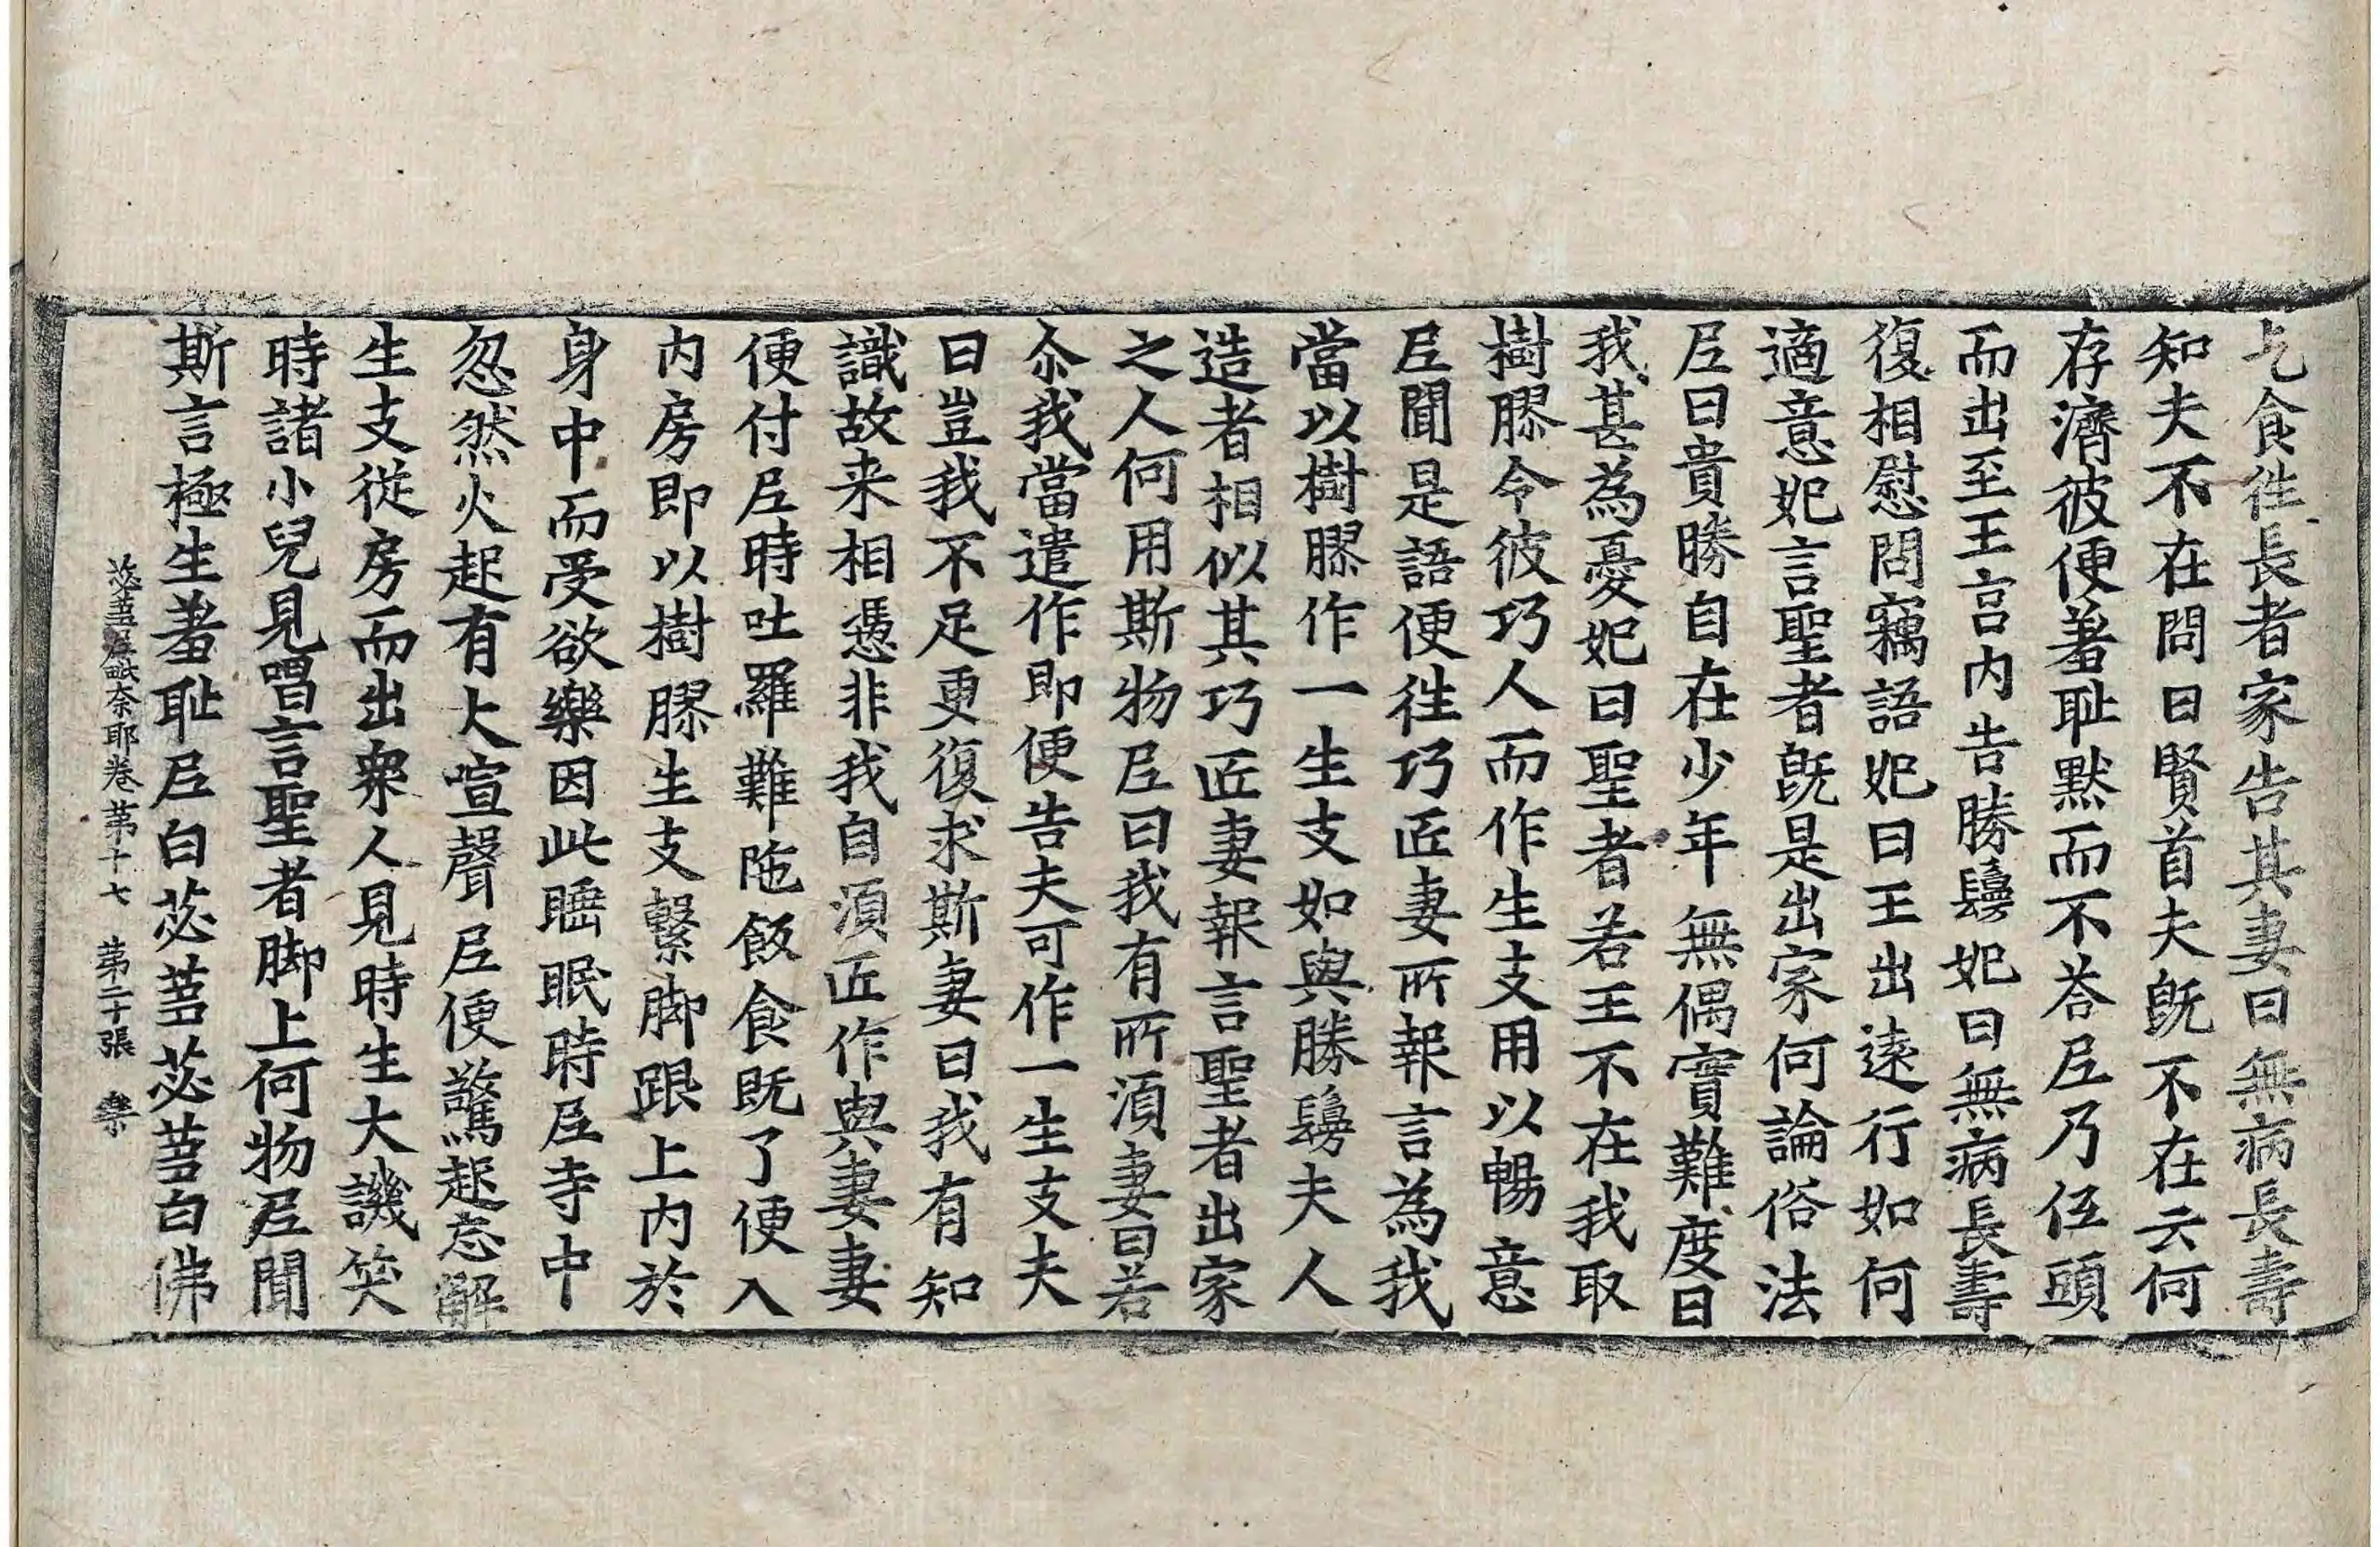 乞食徃長者家告其妻曰無病長壽
知夫不在問曰賢首夫旣不在云何
存濟彼便羞耻黙而不荅尼乃伍頭
而出至王宫内告勝鬘妃曰無病長壽
復相慰問竊語妃曰王出遠行如何
適意妃言聖者旣是出家何論俗法
尼曰貴勝自在少年無偶實難度日
我甚為憂妃曰聖者若王不在我取
樹膠令彼巧人而作生支用以暢意
尼聞是語便徃巧匠妻所報言為我
當以樹膠作一生支如與勝鬘夫人
造者相似其巧匠妻報言聖者出家
之人何用斯物尼曰我有所湏妻曰若
尒我當遣作即便告夫可作一生支夫
曰豈我不足更復求斯妻曰我有知
識故来相憑非我自湏匠作與妻妻
便付尼時吐羅難陁飯食旣了便入
内房即以樹膠生支繫脚跟上内於
身中而受欲樂因此睡眠時尼寺中
忽然火起有大喧聲尼便驚起忘解
生支從房而出衆人見時生大譏笑
時諸小兒見唱言聖者脚上何物尼聞
斯言極生羞耻尼白苾蒭苾蒭白佛
苾蒭尼毗奈耶卷苐十七 苐二十張 樂